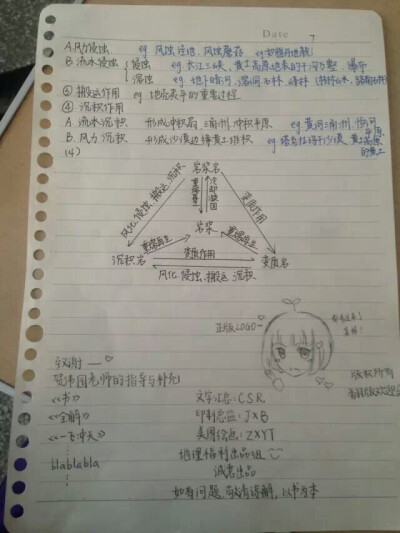 Date 7
A.风力侵蚀 eg.风蚀洼地、风蚀蘑菇
B.流水侵蚀 侵蚀 eg.长江三峡、黄土高原地表的千沟万壑、瀑布
溶蚀 eg.地下暗河、溶洞、石林、峰林
③搬运作用 eg.地壳表平的重要过程
④沉积作用
A.流水沉积 形成冲积扇、三角洲、冲积平原 eg.黄河三角洲、恒河平原
B.风力沉积 形成沙漠边缘黄土堆积 eg.塔克拉玛干沙漠、黄土高原的黄土
(4)
岩浆岩
风化、侵蚀、搬运、沉积
重熔再生
冷却凝固
变质作用
岩浆
重熔再生
重熔再生
沉积岩
变质作用
变质岩
风化、侵蚀、搬运、沉积
正版LOGO
致谢——
老师的指导与补充
版权所有
《书》
文字汇总:CSR
《全解》
印制总监:JXB
《一飞冲天》
美图绘画:ZXYT
blablabla
地理福利出品组
诚意出品
如有问题,敬请谅解,以书为本